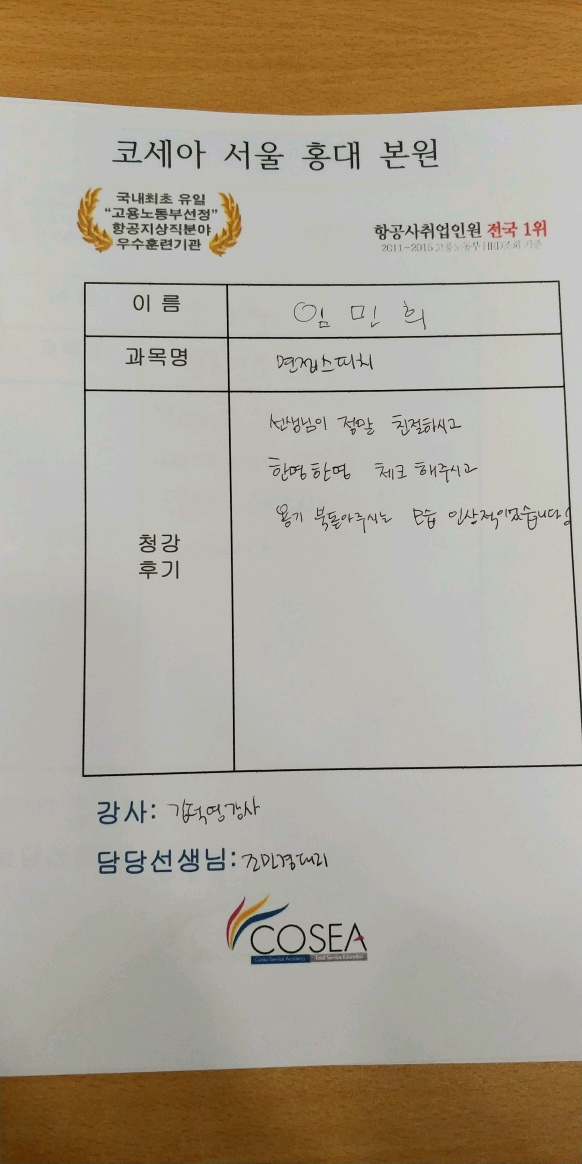 코세아 서울 홍대 본원
국내최초 유일
"고용노동부선정"
항공지상직분야
우수훈련기관
항공사취업인원 전국 1위
2011~2015 고용노동부 HRD조회 기준
이 름
임 민 희
과목명
면접스피치
선생님이 정말 친절하시고
한명한명 체크 해주시고
용기 북돋아주시는 모습 인상적이었습니다!
청강
후기
강사: 강사
담당선생님: 조민경대리
COSEA
Cosea Service Academy Total Service Education